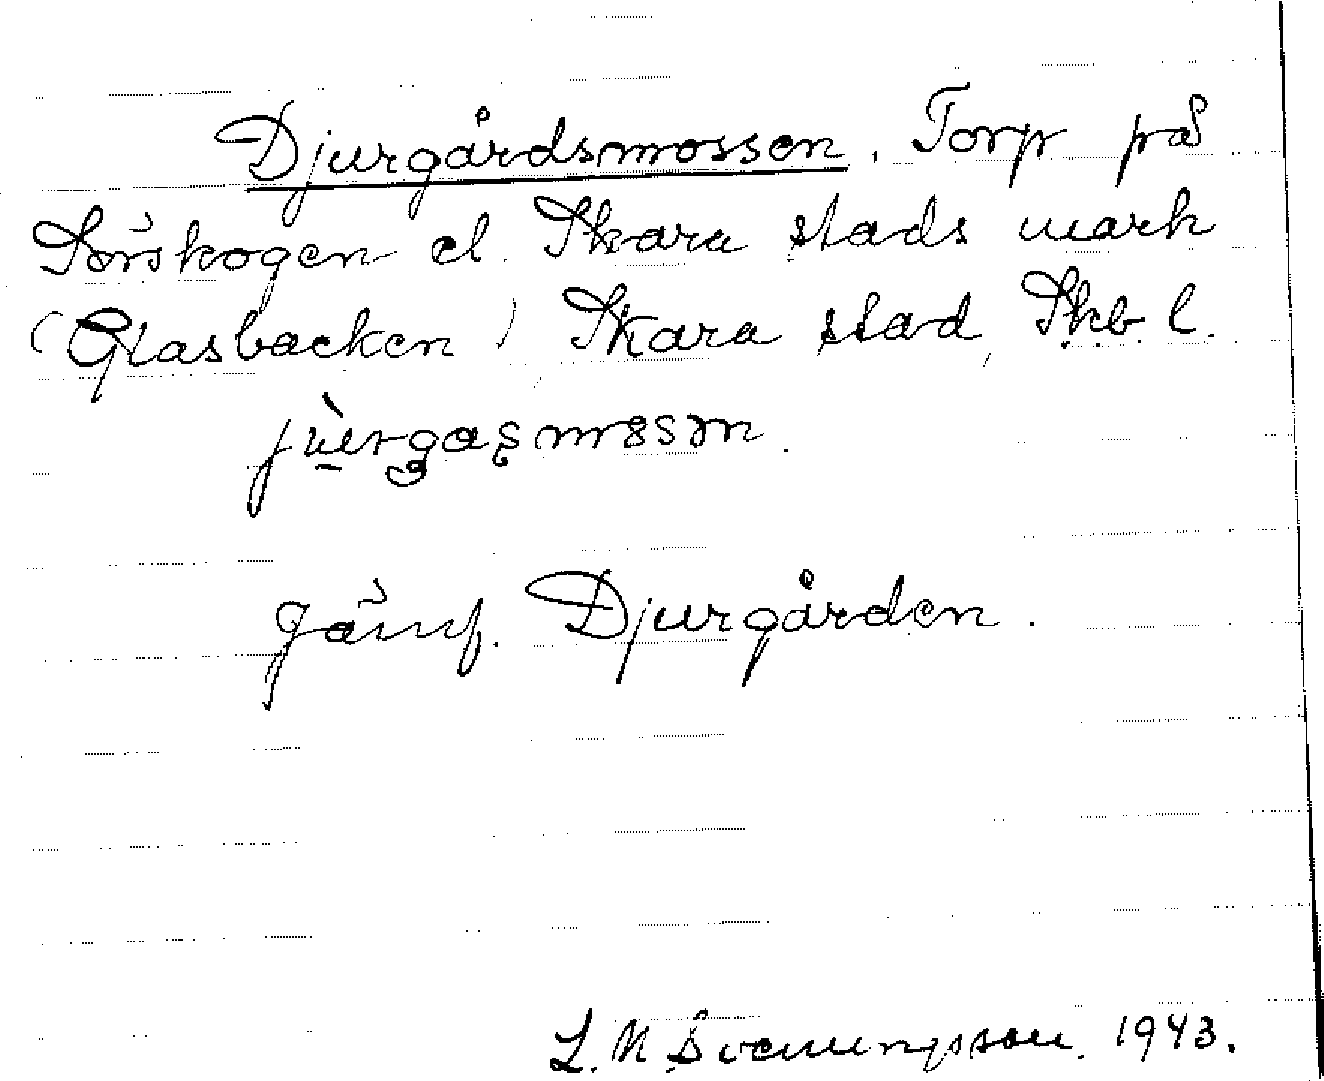 Djurgårdsmossen. Torp på
Sörskogen el. Skara stads mark
(Glasbacken) Skara stad, Skb. l.
Jämf. Djurgården.
L. M. Svenungsson. 1943.